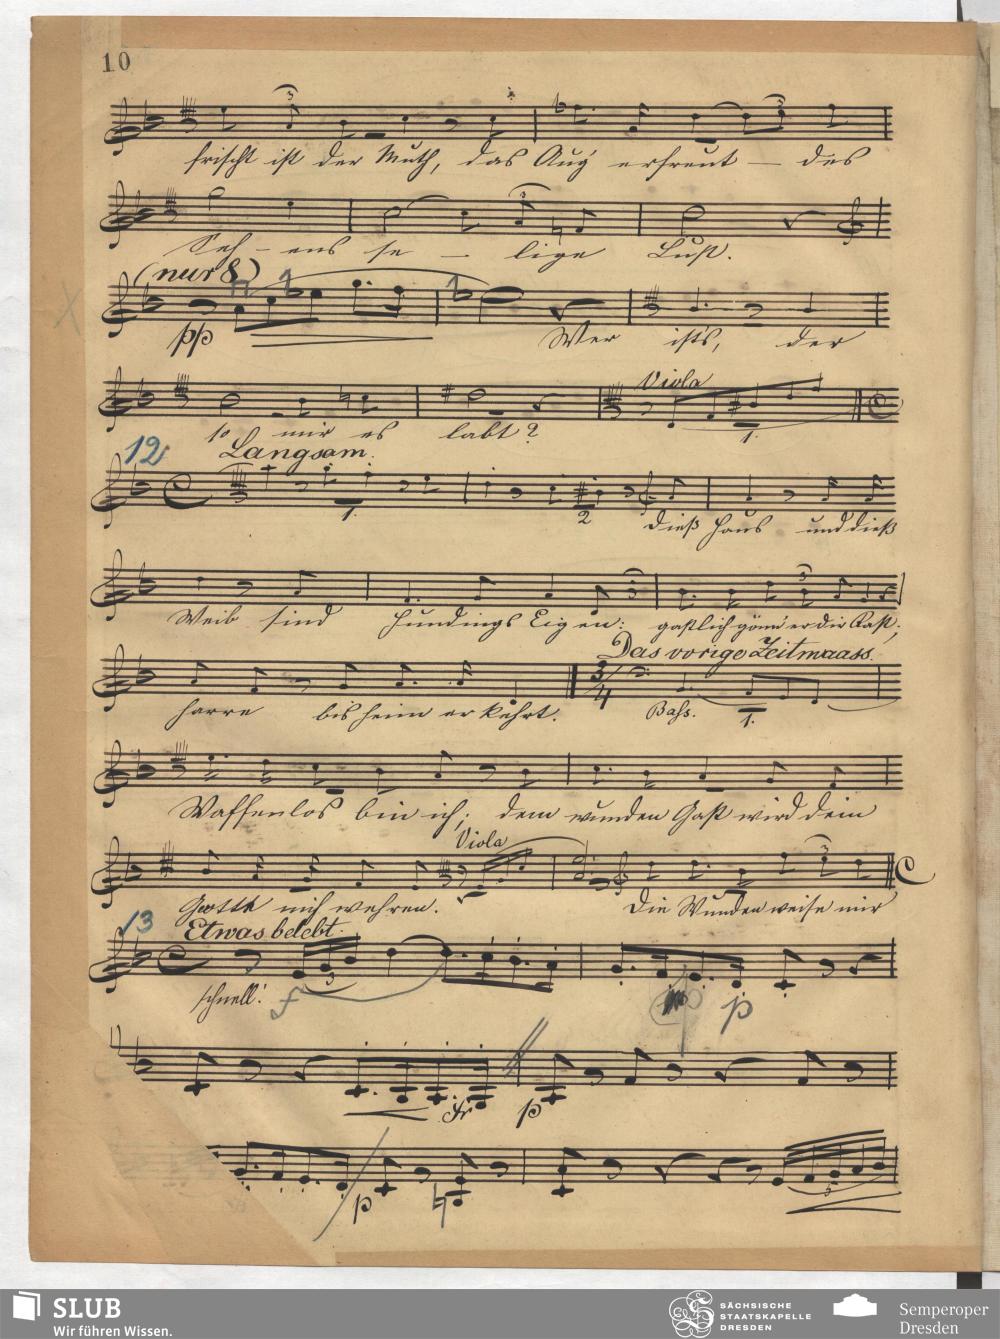 10
3 3
frischt ist der Muth, das Aug' erfreut — des
3
Seh - ens se - lige Lust.
(nur 8)
pp
Wer ist's, der
Viola
1.
so mir es labt?
12 Langsam.
1. 2
dieß Haus und dieß
3 3
Weib sind Hundings Eigen: gastlich gönn' er dir Rast;
Das vorige Zeitmaass.
3/4
harre bis heim er kehrt. Baß. 1.
Waffenlos bin ich; dem wunden Gast wird dein
Viola
3
Gatte nicht wehren. Die Wunden weise mir
13 Etwas belebt.
3
schnell! f p
fr p
p 5
SLUB
Wir führen Wissen.
SÄCHSISCHE
STAATSKAPELLE
DRESDEN
Semperoper
Dresden